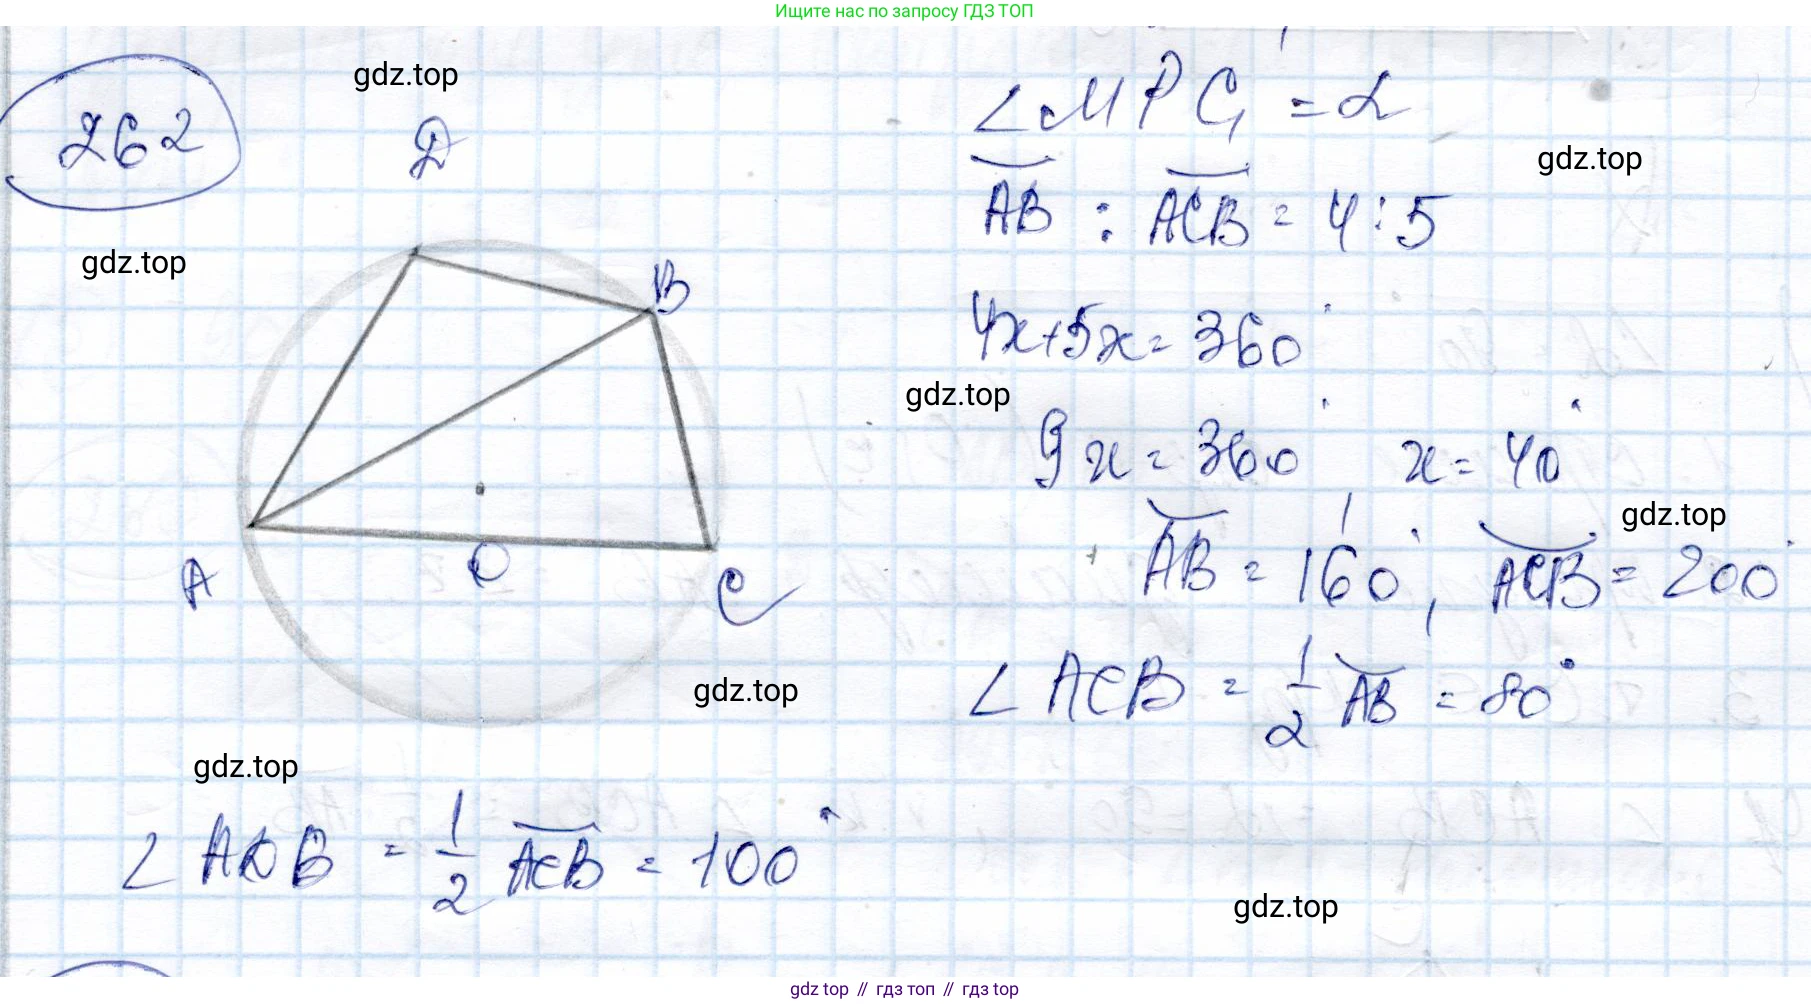 Ищите нас по запросу ГДЗ ТОП
262
gdz.top
D
∠MPC = α
gdz.top
AB : ACB = 4 : 5
gdz.top
B
4x+5x = 360°
gdz.top
9x = 360° x = 40°
gdz.top
AB = 160°, ACB = 200°
A
O
C
∠ACB = 1/2 AB = 80°
gdz.top
gdz.top
∠ADB = 1/2 ACB = 100°
gdz.top
gdz top // гдз топ // гдз top